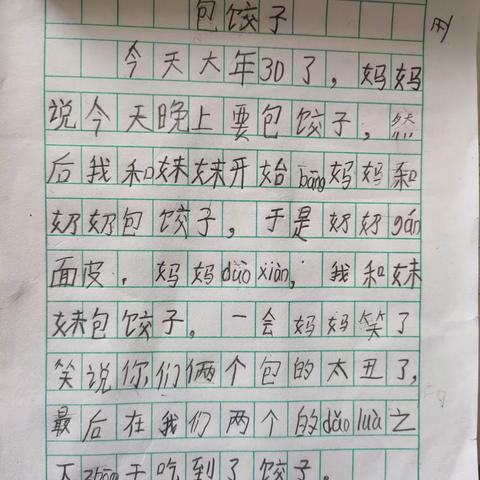 包饺子
今天大年30了，妈妈
说今天晚上要包饺子，然
后我和妹妹开始bāng妈妈和
奶奶包饺子，于是奶奶gǎn
面皮．妈妈duò xiàn，我和妹
妹包饺子。一会妈妈笑了
笑说你们俩个包的太丑了，
最后在我们两个的dǎo luà之
下zhōng于吃到了饺子。